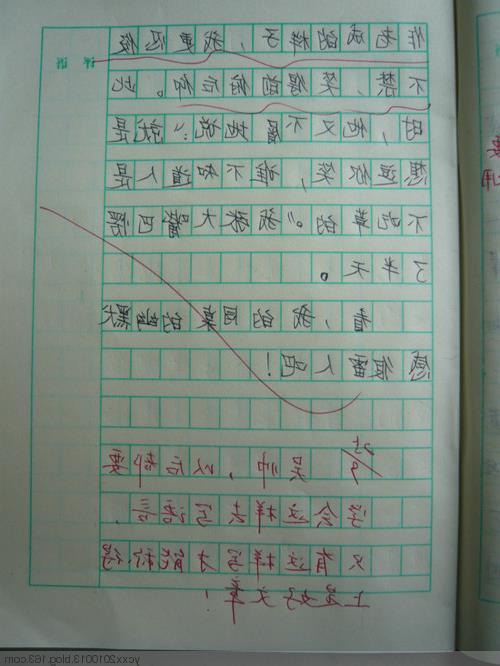 作老成的样子，我更忍俊
不禁，笑得前俯后仰。此
时，他又不屑地说：“就是
想逗你笑，谁不知道人是
不吃草的。”我张大嘴巴愣
了半天。
看，我的同桌的幽默
感很雷人吧！
吴帅，以后都要
学会这样去写语言，
只有这样写才能称得
上是好文章！
ycxx20100013.blog.163.com